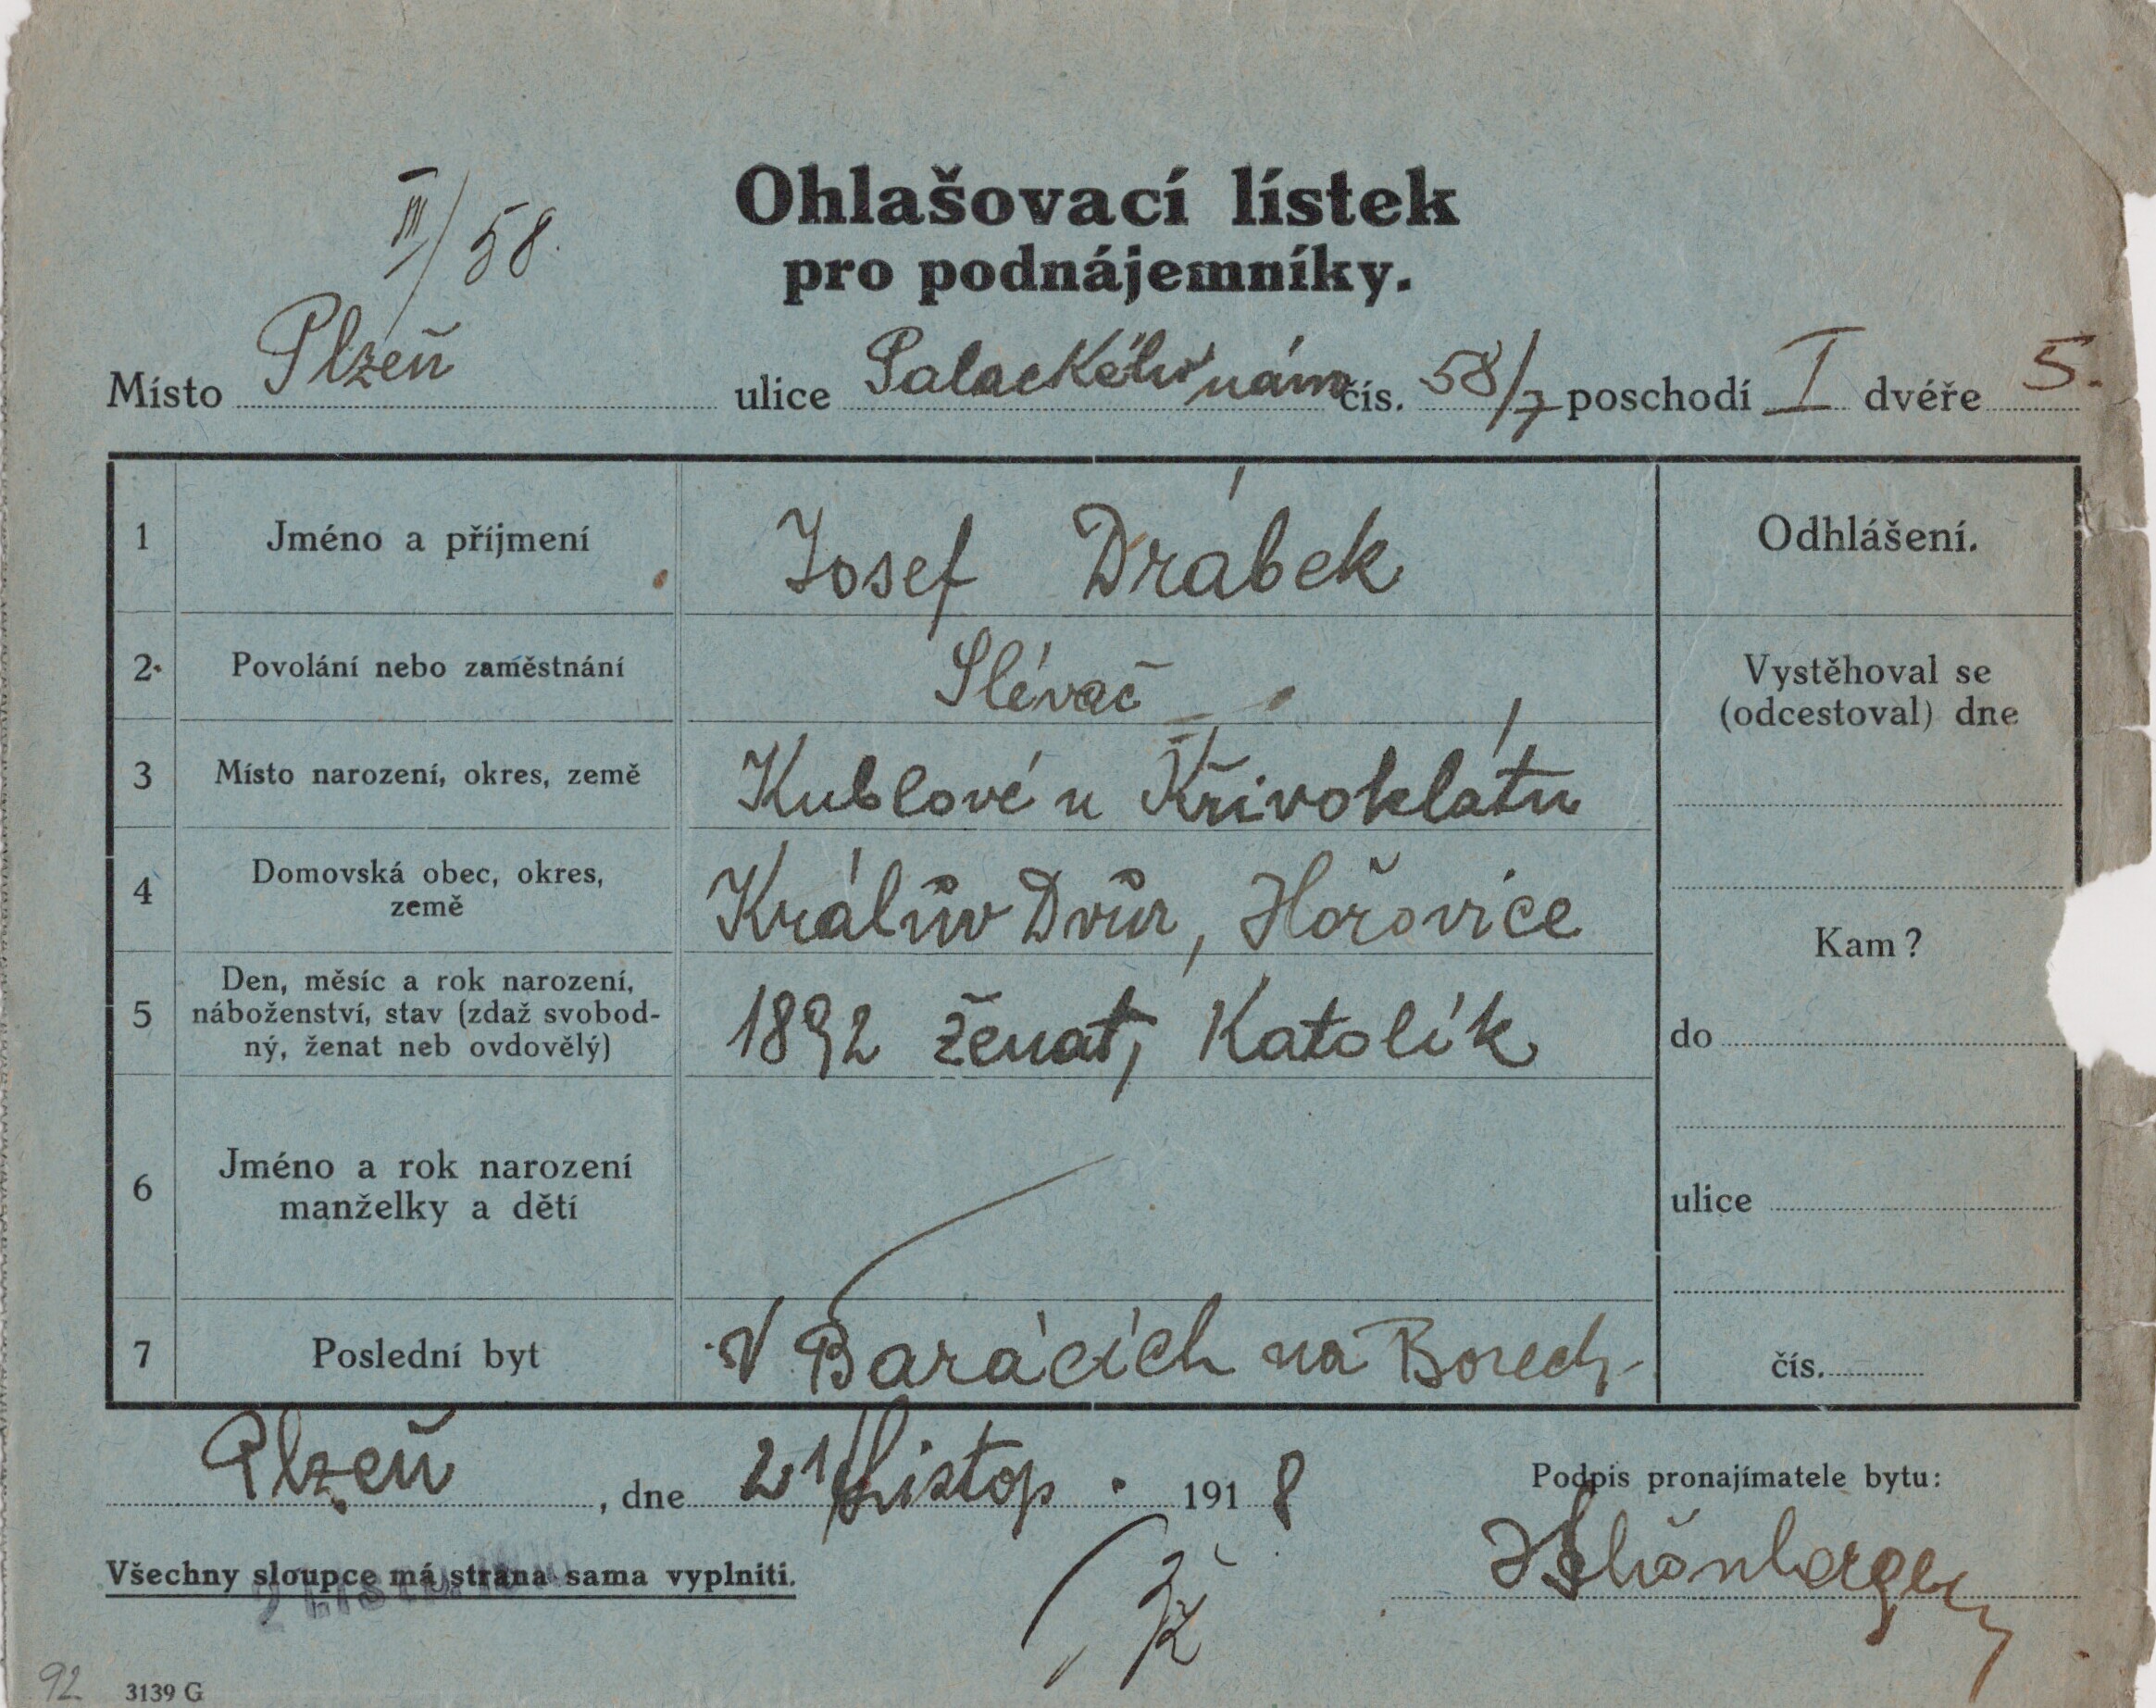 III/58.
Ohlašovací lístek
pro podnájemníky.
Místo Plzeň ulice Palackého nám čís. 58/7 poschodí I dvéře 5.
1 Jméno a příjmení Josef Drábek Odhlášení.
2. Povolání nebo zaměstnání Slévač Vystěhoval se
(odcestoval) dne
3 Místo narození, okres, země Kublové u Křivoklátu
4 Domovská obec, okres,
země Králův Dvůr, Hořovice
Kam?
5 Den, měsíc a rok narození,
náboženství, stav (zdaž svobod-
ný, ženat neb ovdovělý) 1892 ženat, Katolík
do
6 Jméno a rok narození
manželky a dětí
ulice
7 Poslední byt V Barácích na Borech
čís.
Plzeň, dne 21 Listop. 1918
Podpis pronajímatele bytu:
Všechny sloupce má strana sama vyplniti.
92 3139 G